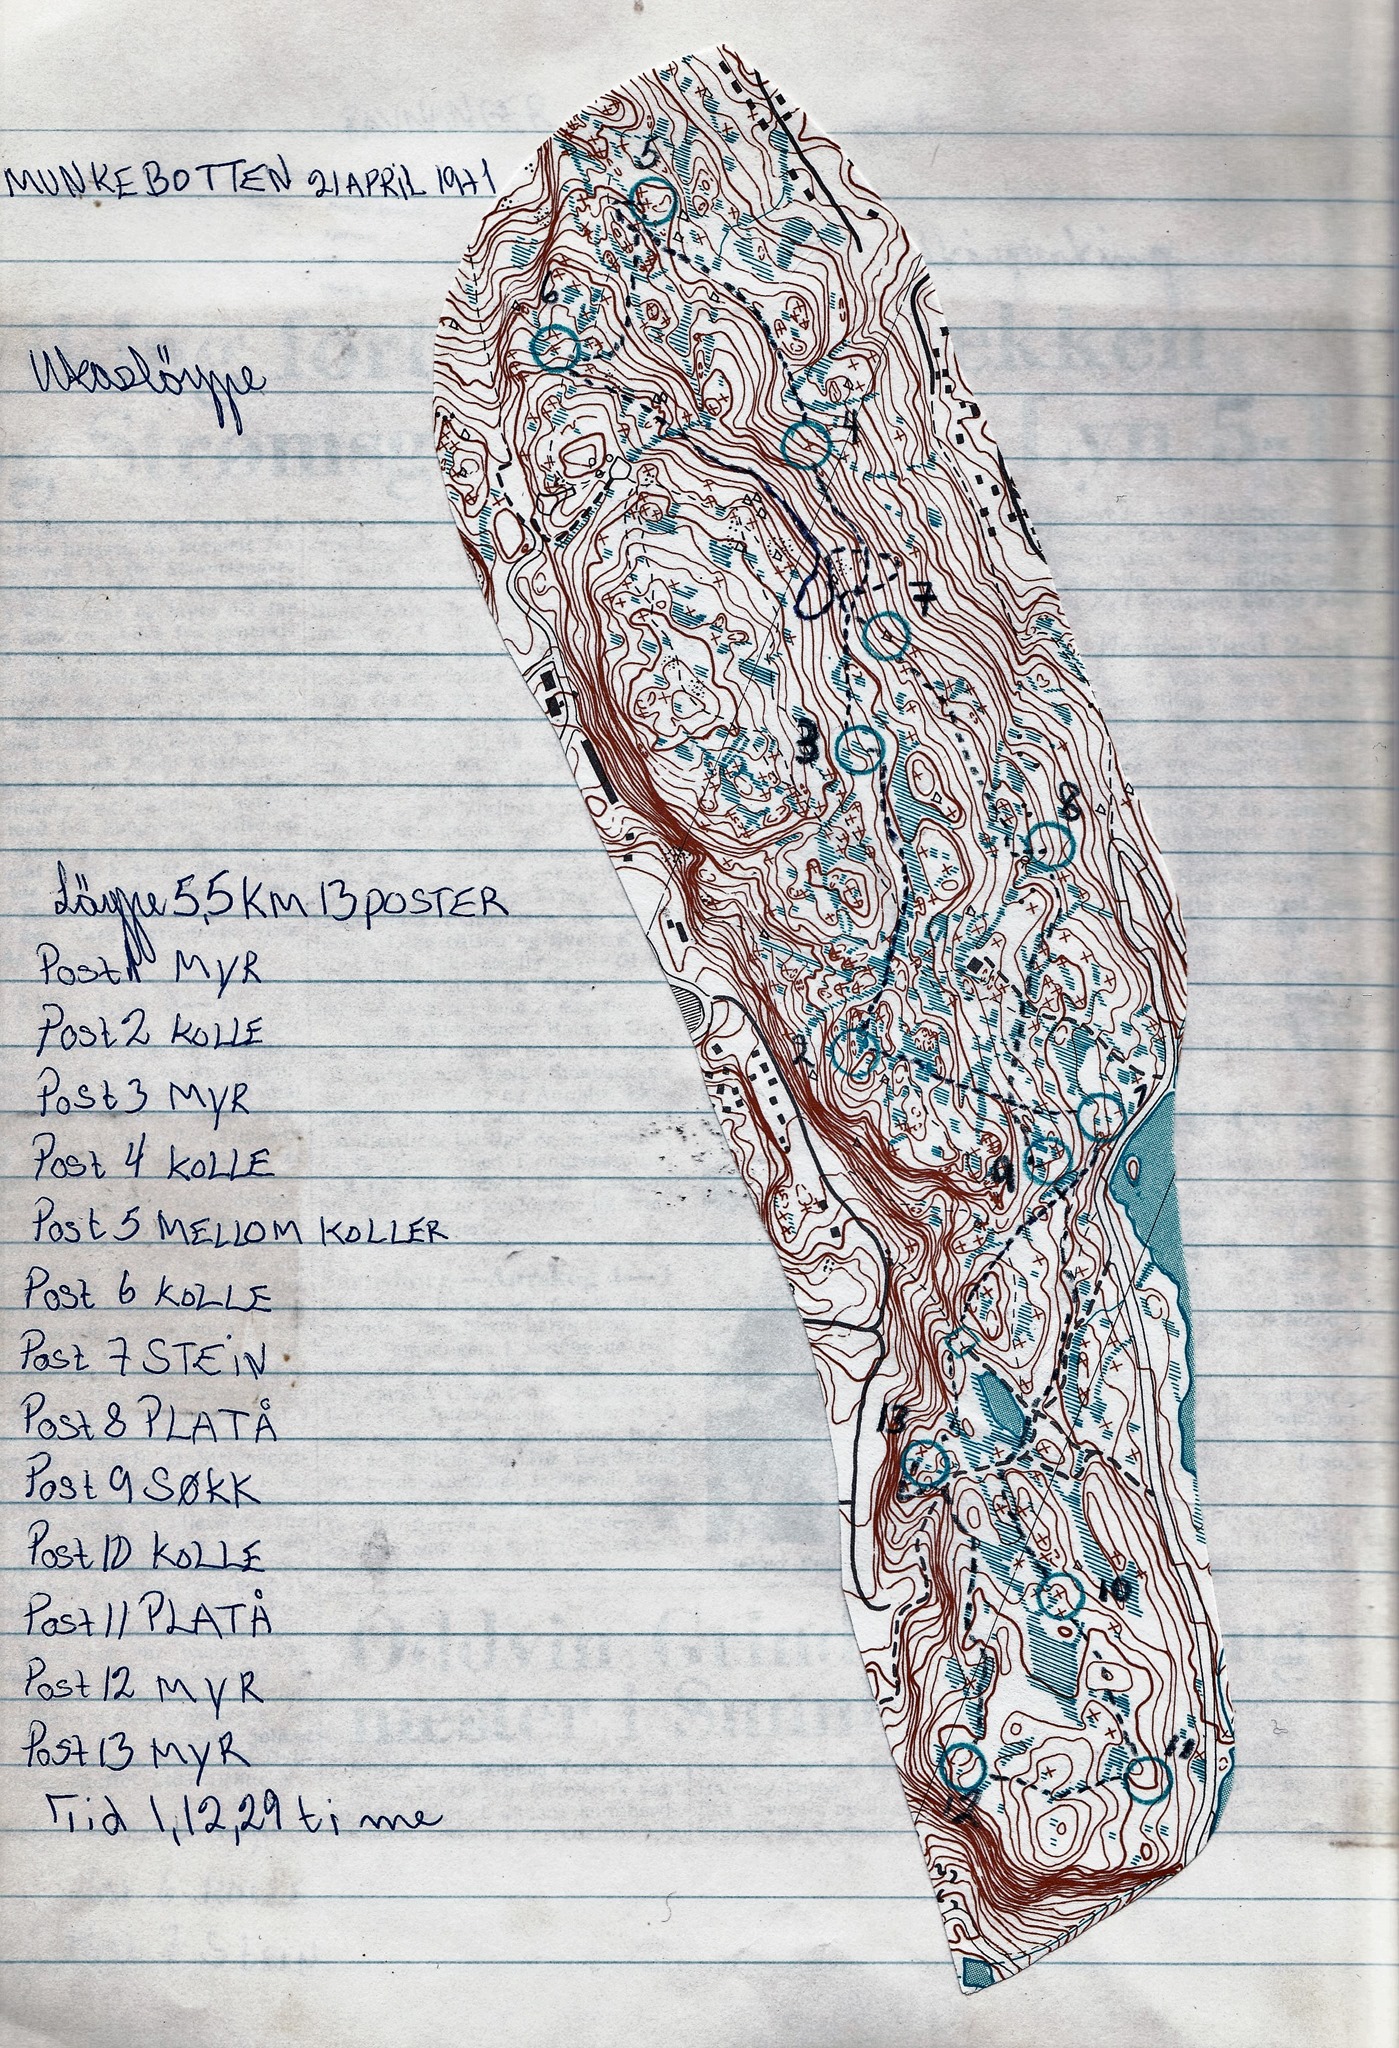 MUNKEBOTTEN 21 APRIL 1971
Ukasløype
Løype 5,5 KM 13 POSTER
Post 1 MYR
Post 2 KOLLE
Post 3 MYR
Post 4 KOLLE
Post 5 MELLOM KOLLER
Post 6 KOLLE
Post 7 STEIN
Post 8 PLATÅ
Post 9 SØKK
Post 10 KOLLE
Post 11 PLATÅ
Post 12 MYR
Post 13 MYR
Tid 1,12,29 time
5
6
4
7
3
8
2
1
9
13
10
11
12